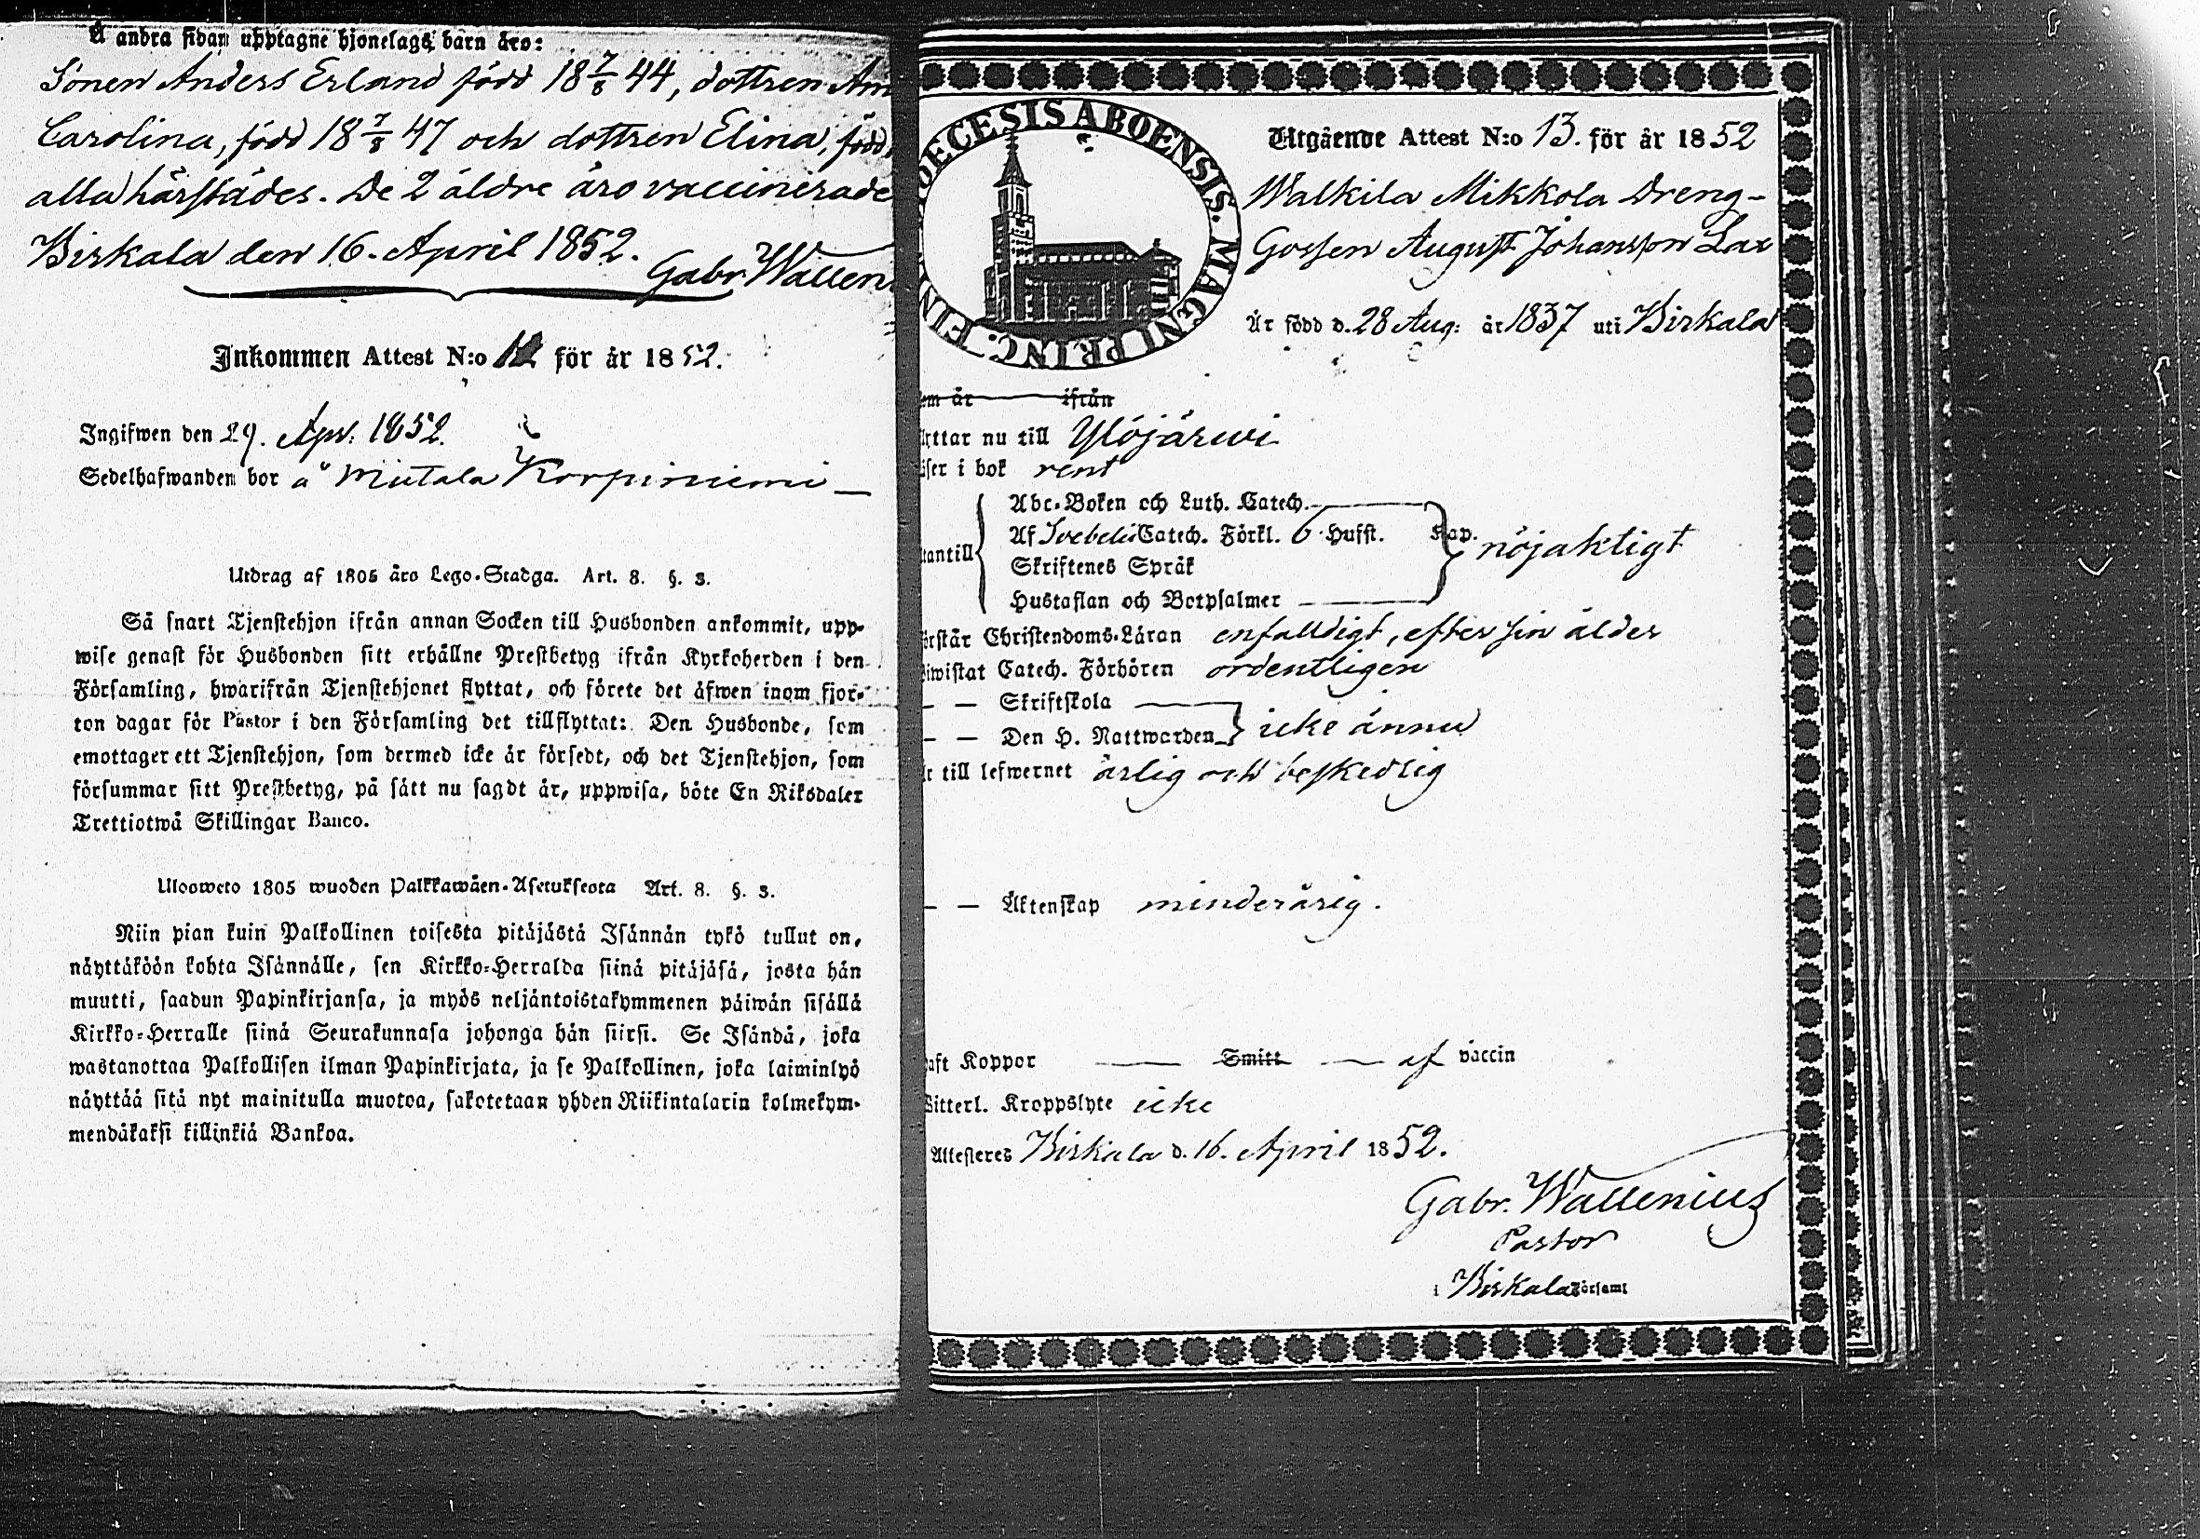 Å andra sidan upptagne hjonelags barn äro:
Sonen Anders Erland född 18 7/8 44, dottren
Carolina, född 18 7/8 47 och dottren Elina, född
alla härstädes. De 2 äldre äro vaccinerade
Birkala den 16. April 1852.
Gabr. Wallen
Inkommen Attest N:o 12 för år 1852.
Ingifwen den 29. Apr. 1852.
Sedelhafwanden bor å Mutala Korpiniemi
Utdrag af 1805 års Lego-Stadga. Art. 8. §. 3.
Så snart Tjenstehjon ifrån annan Socken till Husbonden ankommit, upp-
wise genast för Husbonden sitt erhållne Prestbetyg ifrån Kyrkoherden i den
Församling, hwarifrån Tjenstehjonet flyttat, och förete det äfwen inom fjor-
ton dagar för Pastor i den Församling det tillflyttat: Den Husbonde, som
emottager ett Tjenstehjon, som dermed icke är försedt, och det Tjenstehjon, som
försummar sitt Prestbetyg, på sätt nu sagdt är, uppwisa, böte En Riksdaler
Trettiotwå Skillingar Banco.
Ulosweto 1805 wuoden Palkkawäen-Asetuksesta Art. 8. §. 3.
Niin pian kuin Palkollinen toisesta pitäjästä Isännän tykö tullut on,
näyttäköön kohta Isännälle, sen Kirkko-Herralda siinä pitäjäsä, josta hän
muutti, saadun Papinkirjansa, ja myös neljäntoistakymmenen päiwän sisällä
Kirkko-Herralle siinä Seurakunnasa johonga hän siirsi. Se Isändä, joka
wastanottaa Palkollisen ilman Papinkirjata, ja se Palkollinen, joka laiminlyö
näyttää sitä nyt mainitulla muotoa, sakotetaan yhden Riikintalarin kolmekym-
mendäkaksi killinkiä Bankoa.
DIOECESIS ABOENSIS. MAGNI PRINC. FIN
Utgående Attest N:o 13. för år 1852
Walkila Mikkola Dreng-
Gossen August Johansson Lax
Är född d. 28 Aug: år 1837 uti Birkala
om är ifrån
yttar nu till Ylöjärwi
äser i bok rent
Abc-Boken och Luth. Catech.
Af Svebelii Catech. Förkl. 6 Hufst. Kap.
utantill nöjaktigt
Skriftenes Språk
Hustaflan och Botpsalmer
örstår Christendoms-Läran enfalldigt, efter sin ålder
iwistat Catech. Förhören ordentligen
— — Skriftskola
— — Den H. Nattwarden icke ännu
r till lefwernet ärlig och beskedlig
— — Äktenskap minderårig.
aft Koppor Smitt af vaccin
Witterl. Kroppslyte icke
Attesteres Birkala d. 16. April 1852.
Gabr. Wallenius
Pastor
i Birkala Församl